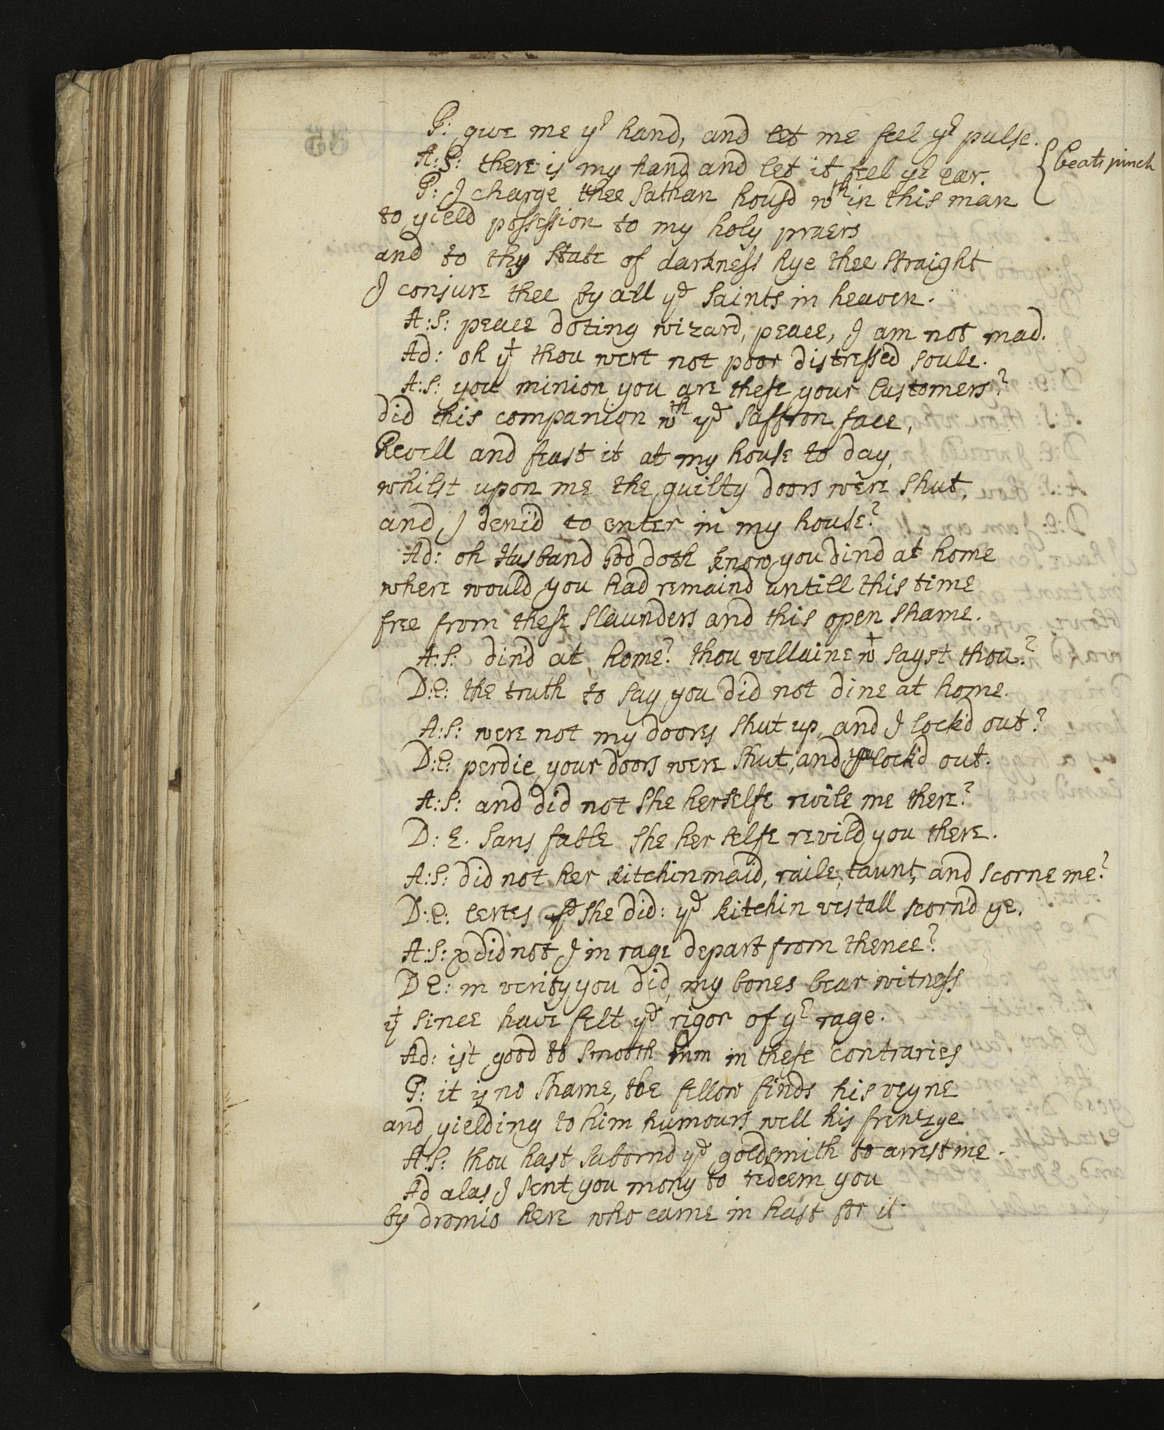 P: give me yr hand, and let me feel yr pulse.
A:S: there is my hand and let it feel yr ear.
{beats pinch
P: I charge thee Sathan hous'd wth in this man
to yield possession to my holy praiers
and to thy state of darkness hye thee straight
I conjure thee by all ye saints in heaven.
A:S: peace doting wizard, peace, I am not mad.
Ad: oh yt thou wert not poor distressed soule.
A:S: you minion you are these your Customers?
did this companion wth ye saffron face,
Revell and feast it at my house to day,
whilst upon me the guilty doors were shut,
and I deni'd to enter in my house?
Ad: oh Husband God doth know you dind at home
where would you had remaind untill this time
free from these slaunders and this open shame.
A:S: din'd at home? thou villaine wt sayst thou?
D:E: the truth to say you did not dine at home.
A:S: were not my doores shut up, and I lock'd out?
D:E: perdie, your doors were shut, and you lock'd out.
A:S: and did not she herselfe revile me there?
D: E. sans fable she her selfe revild you there.
A:S: did not her kitchinmaid, raile, taunt, and scorne me?
D:E: certes she did: ye kitchin vestall scornd ye.
A:S: did not I in rage depart from thence?
D E: in verity you did, my bones bear witness
yt since have felt ye rigor of yr rage.
Ad: ist good to smooth him in these contraries
P: it is no shame, the fellow finds his veyne
and yielding to him humours well his frenzye
A:S: thou hast subornd ye goldsmith to arrest me.
Ad alas I sent you mony to redeem you
by dromio here who came in hast for it.